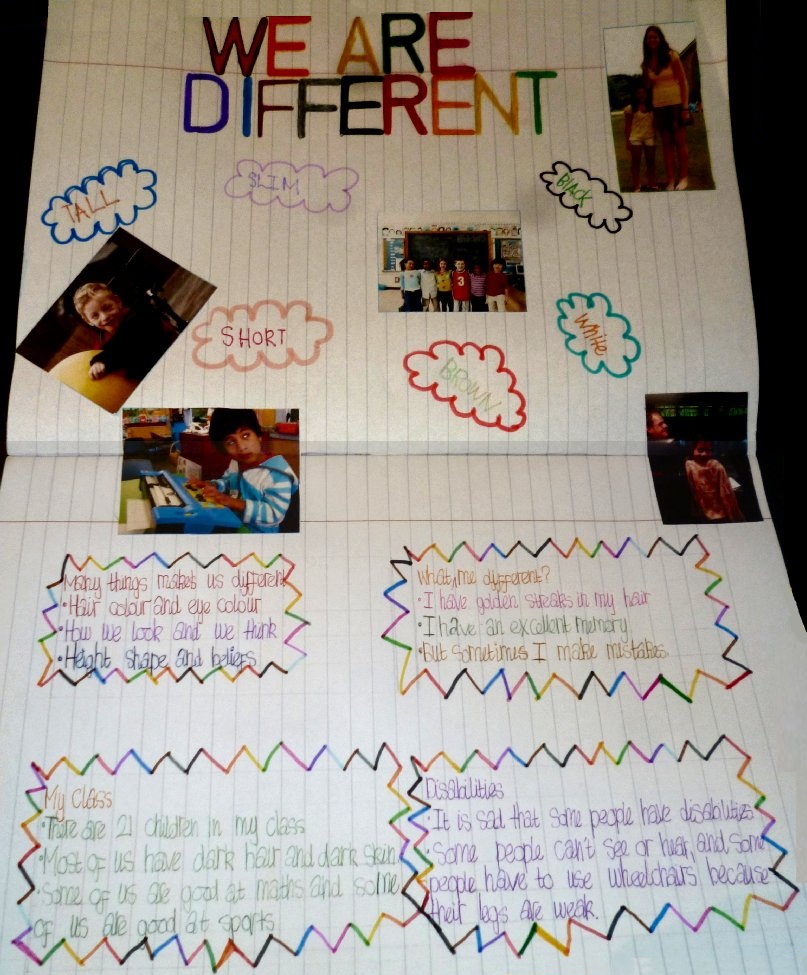 WE ARE
DIFFERENT
TALL
SLIM
BLACK
SHORT
WHITE
BROWN
Many things makes us different
• Hair colour and eye colour
• How we look and we think
• Height shape and beliefs
What, me different?
• I have golden streaks in my hair
• I have an excellent memory
• But sometimes I make mistakes
My Class
• There are 21 children in my class
• Most of us have dark hair and dark skin
• Some of us are good at maths and some
of us are good at sports
Disabilities
• It is sad that some people have disabilities
• Some people can't see or hear, and, some
people have to use wheelchairs because
their legs are weak.